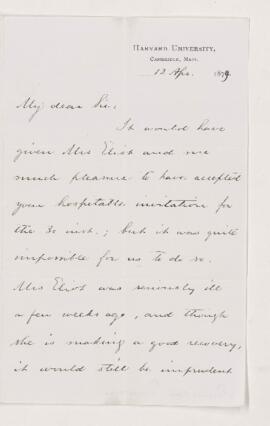 HARVARD UNIVERSITY,
CAMBRIDGE, MASS.
12 Apr. 1879
My dear Sir,
It would have
given Mrs Eliot and me
much pleasure to have accepted
your hospitable invitation for
the 30 inst.; but it was quite
impossible for us to do so.
Mrs Eliot was seriously ill
a few weeks ago, and though
she is making a good recovery,
it would still be imprudent